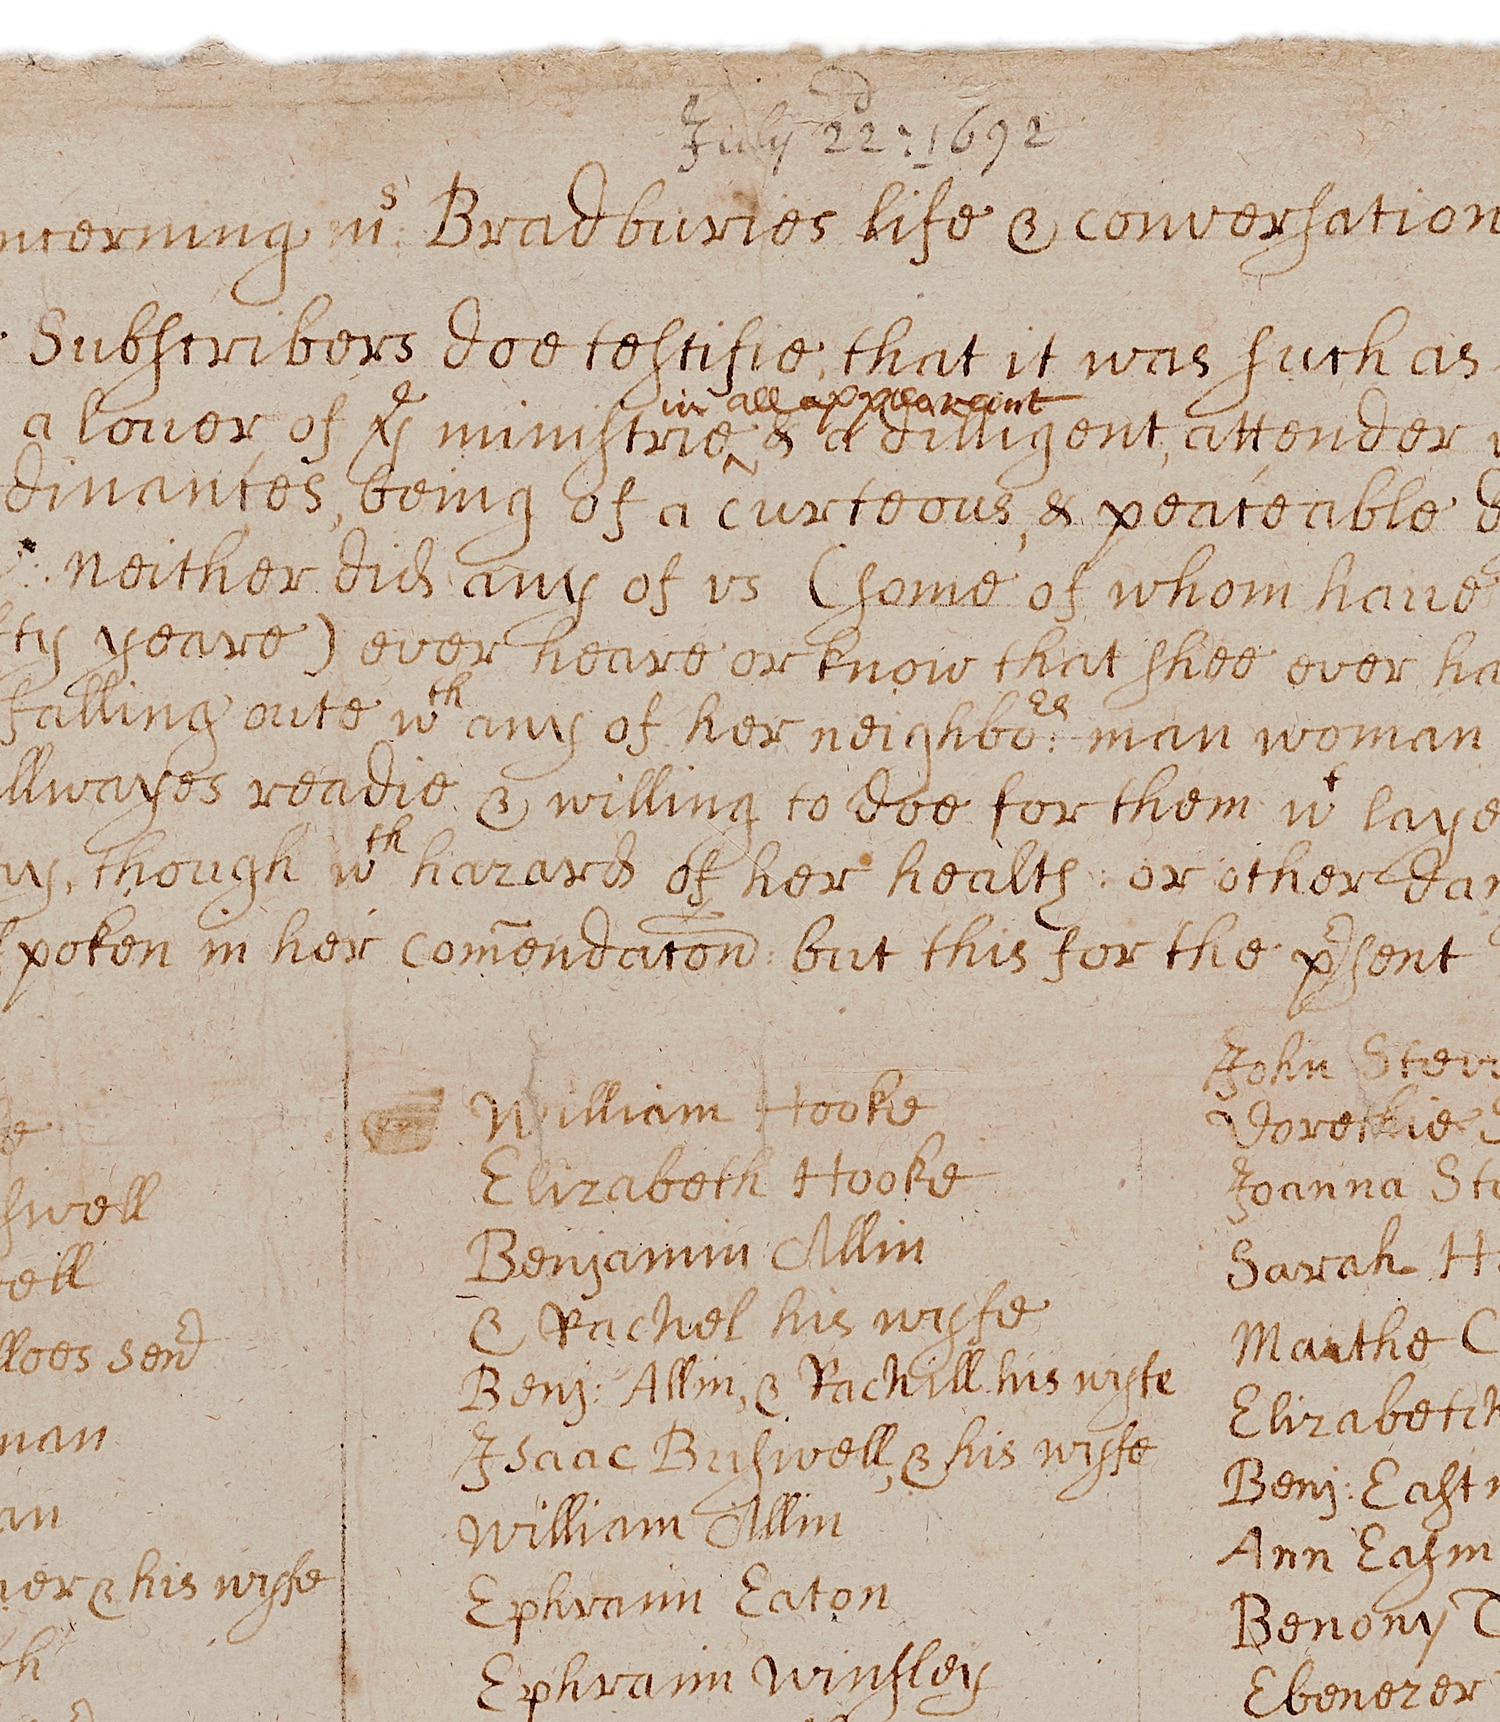 July 22: 1692
ncerning mˢ: Bradburies life & conversation
Subscribers doe testifie: that it was such as
a louer of yᵉ ministrie ^ in all appearanc & a dilligent attender
dinances, being of a curteous, & peaceable
: neither did any of vs (some of whom haue
fty yeare) ever heare or know that shee ever ha
falling oute wᵗʰ any of her neighboʳˢ: man woman
llwayes readie & willing to doe for them wᵗ laye
though wᵗʰ hazard of her health: or other dan
spoken in her com̄endac̄on: but this for the pʳsent
William Hooke
Elizabeth Hooke
Benjamin Allin
& Rachel his wyfe
Benj: Allin, & Rachill his wyfe
Isaac Buswell, & his wyfe
William Allin
Ephraim Eaton
Ephraim Winsley
swell
ell
lloes senʳ
man
an
ner & his wyfe
John Stev
Dorethie S
Joanna Ste
Sarah H
Marthe C
Elizabeth
Benj: Eastm
Ann Easm
Benony T
Ebenezer